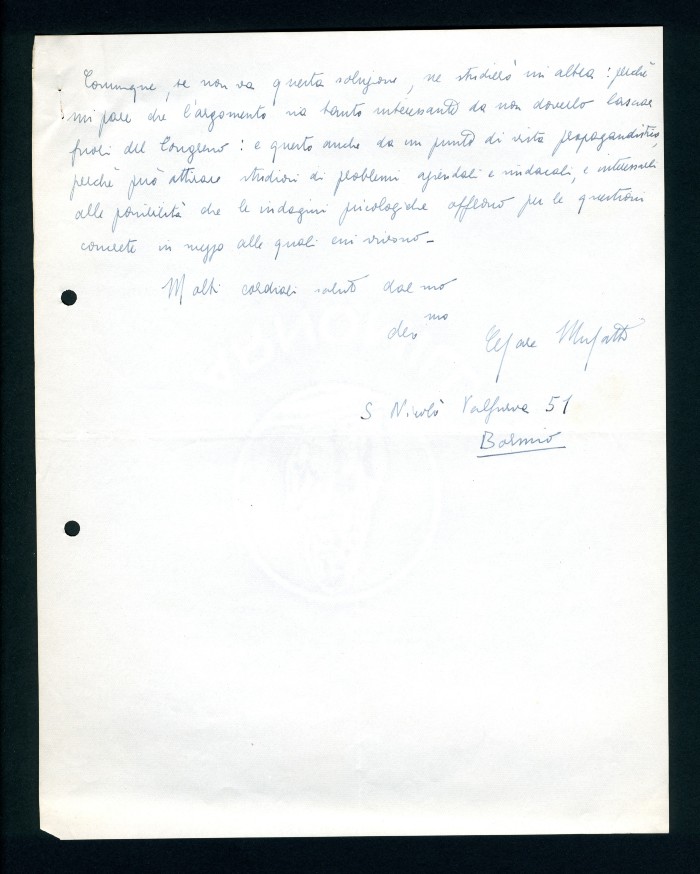 Comunque, se non va questa soluzione, ne studierò un'altra: perchè
mi pare che l'argomento sia tanto interessante da non doverlo lasciar
fuori del Congresso: e questo anche da un punto di vista propagandistico,
perchè può attirare studiosi di problemi aziendali e sindacali, e interessarli
alle possibilità che le indagini psicologiche offrono per le questioni
concrete in mezzo alle quali essi vivono_
Molti cordiali saluti dal suo
dev mo Cesare Musatti
S Nicolò Valfurva 51
Bormio